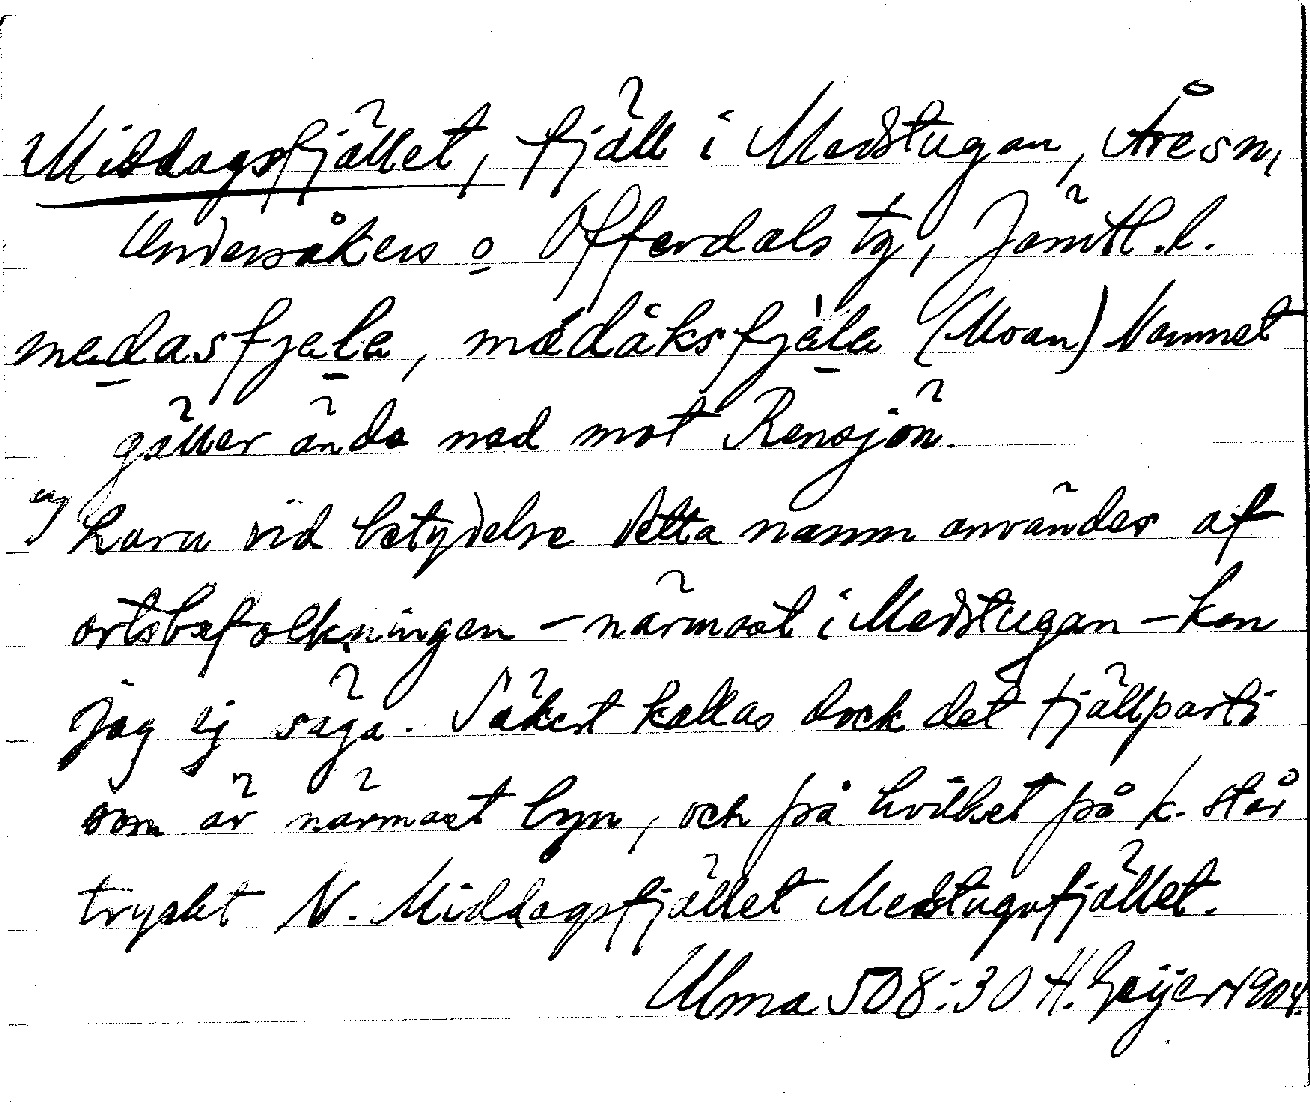 Middagsfjället, fjäll i Medstugan, Åresn,
Undersåkers o Offerdals tg, Jämtl.l.
medasfjele, medåksfjäle (Moan) Namnet
gäller ända ned mot Rensjön.
Huru vid betydelse detta namn användes af
ortsbefolkningen – närmast i Medstugan – kan
jag ej säga. Säkert kallas dock det fjällparti
som är närmast byn, och på hvilket på k. står
tryckt N. Middagsfjället Medstugufjället.
Ulma 508:30 H. Geijer 1904.